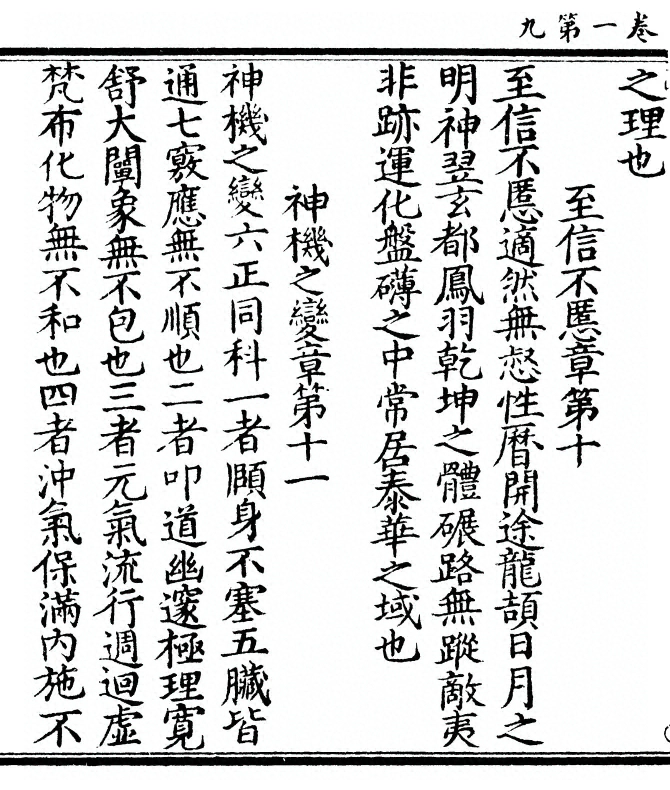 卷一第九
之理也
至信不慝章第十
至信不慝適然無愆性曆開途龍頡日月之
明神翌玄都鳳羽乾坤之體碾路無蹤敵夷
非跡運化盤礴之中常居泰華之域也
神機之變章第十一
神機之變六正同科一者頤身不塞五臟皆
通七竅應無不順也二者叩道幽邃極理寬
舒大闡象無不包也三者元氣流行週迴虛
梵布化物無不和也四者沖氣保滿內施不